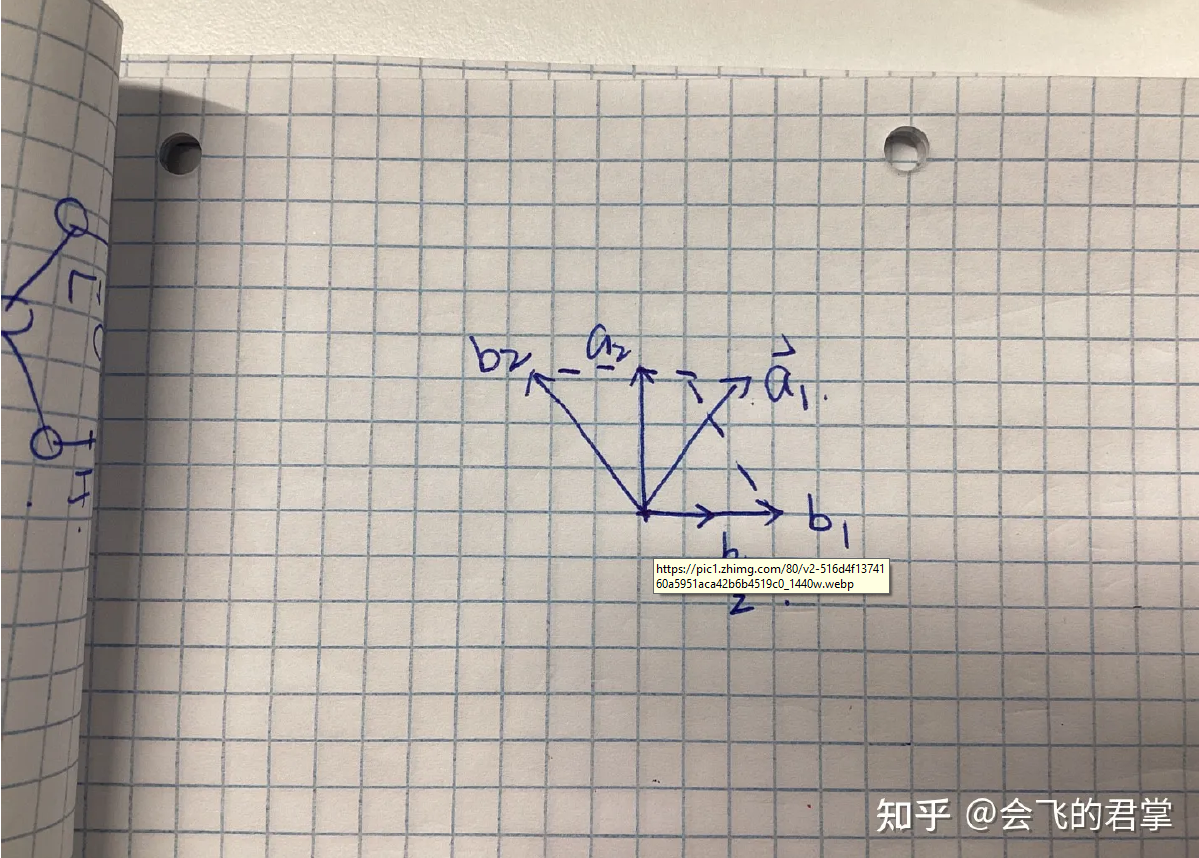 b2
a2
a1.
b1
https://pic1.zhimg.com/80/v2-516d4f13741
60a5951aca42b6b4519c0_1440w.webp
2
知乎 @会飞的君掌